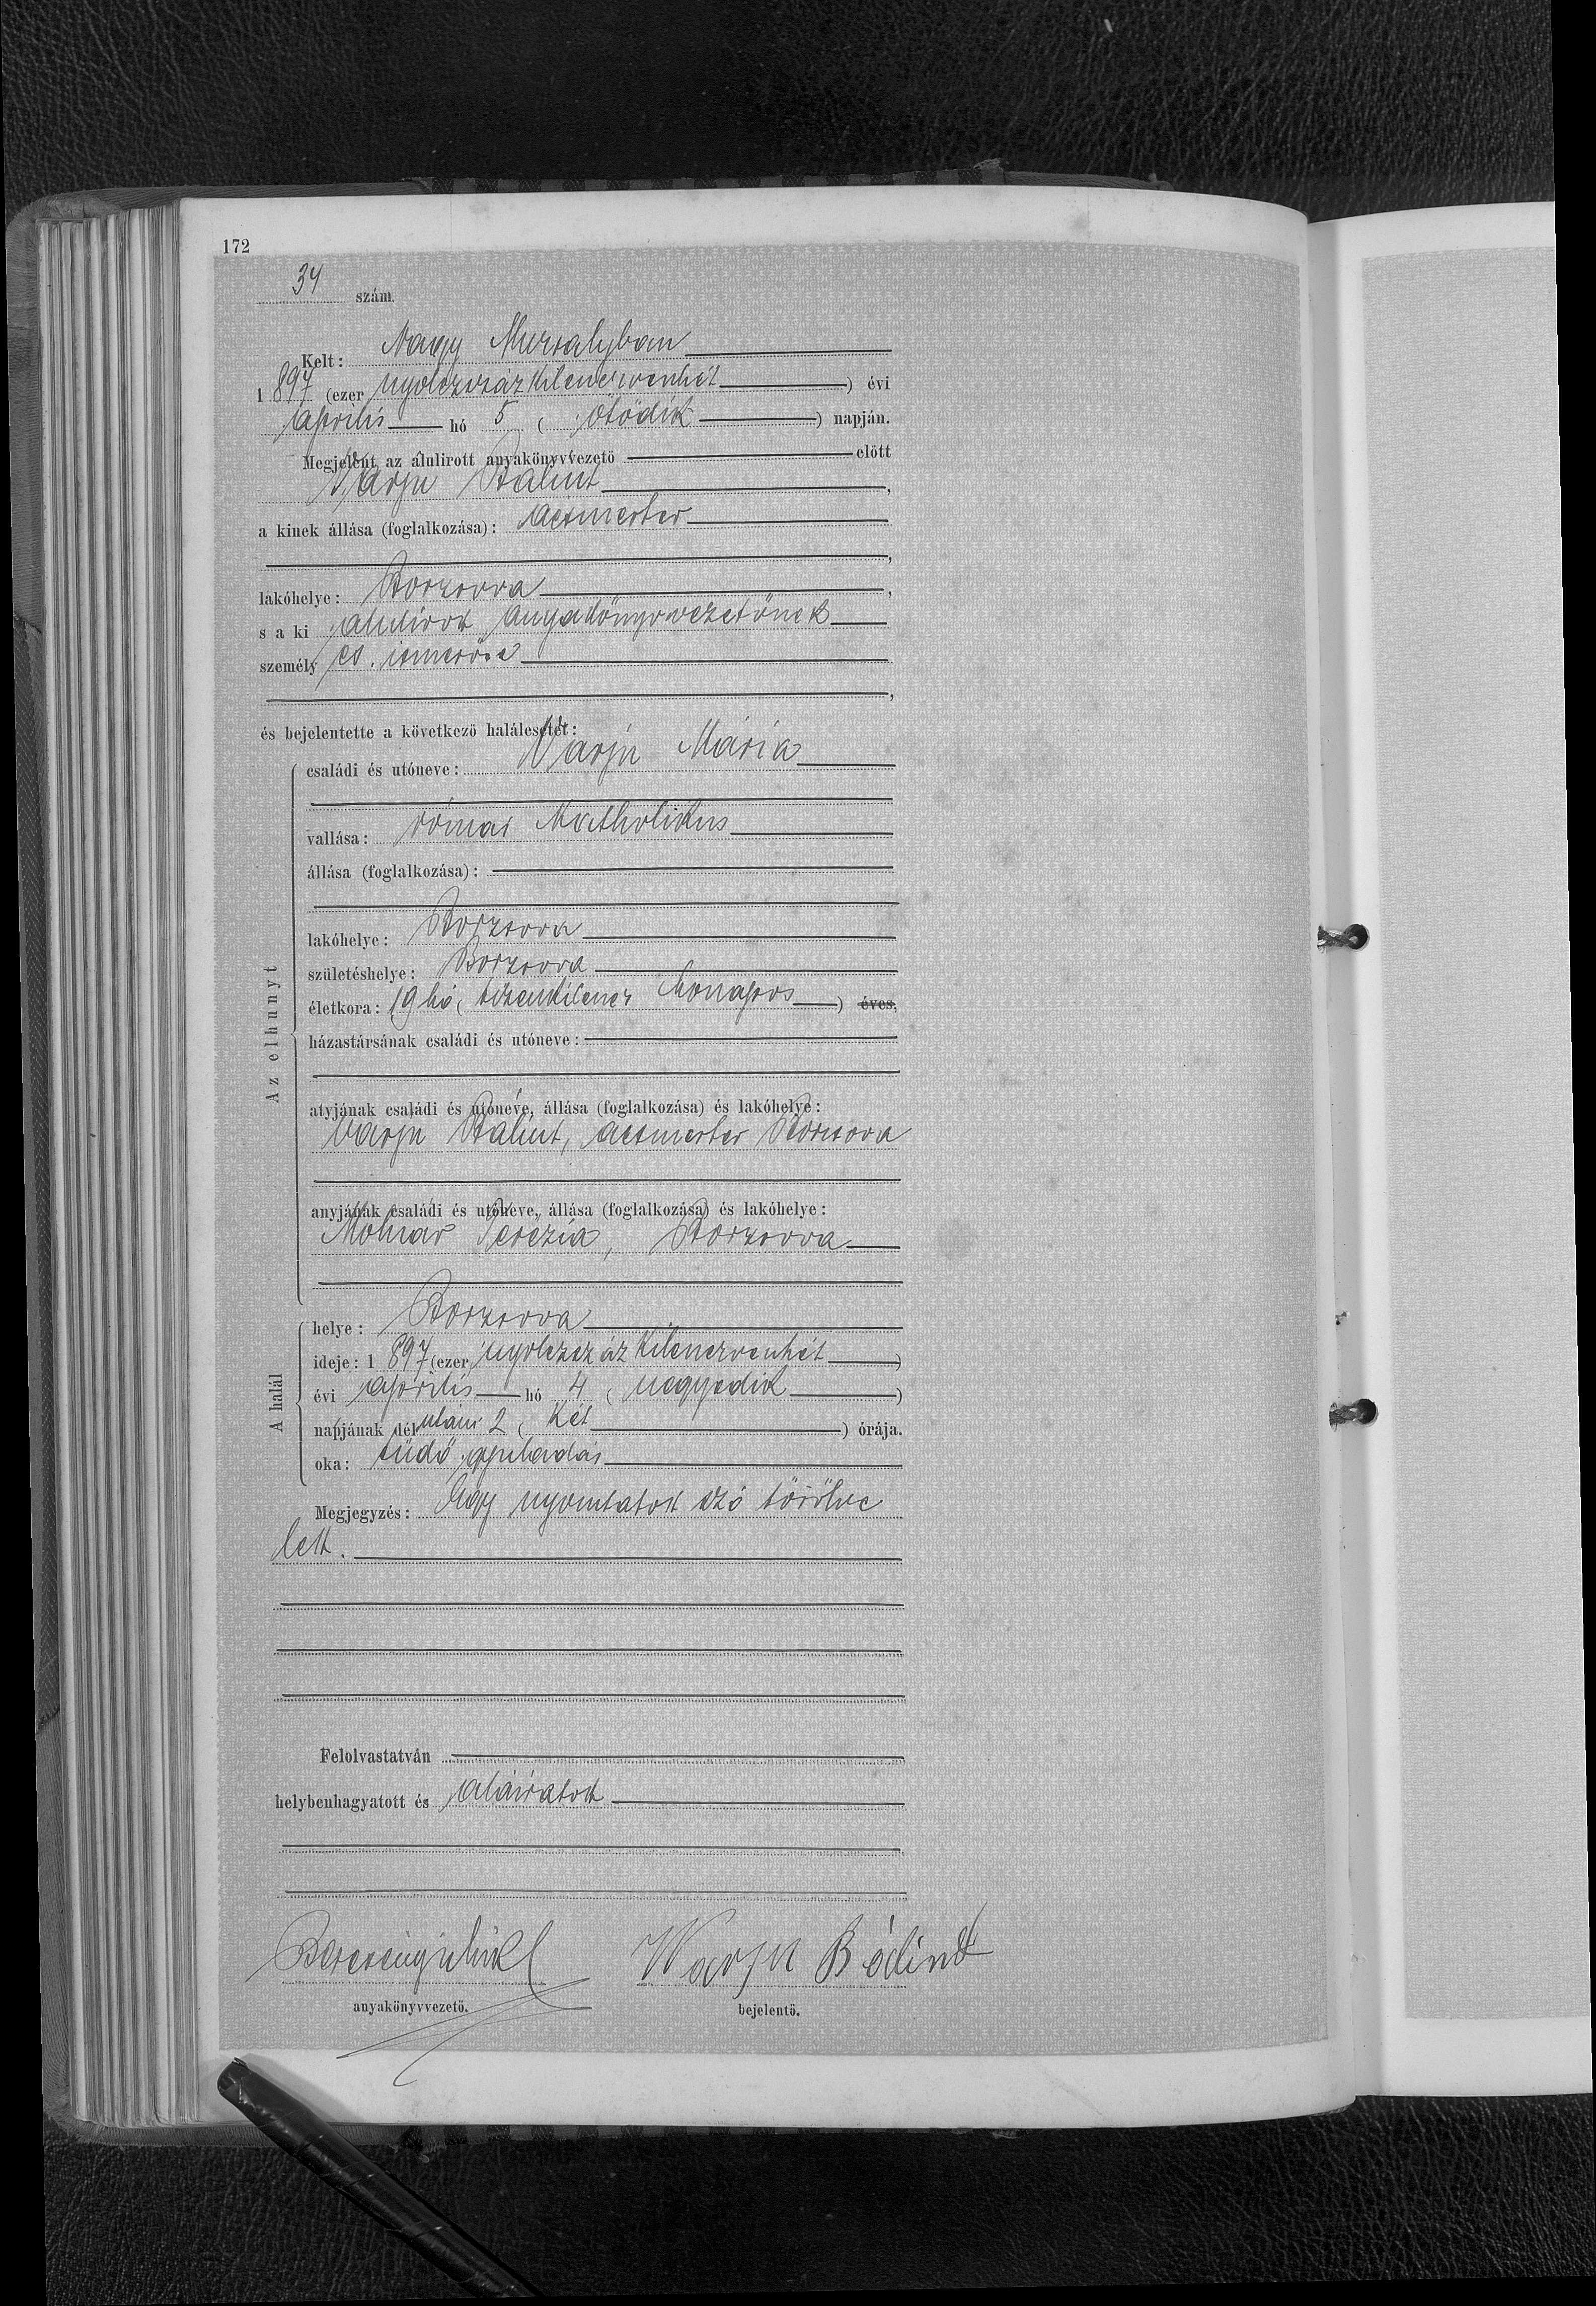 172
34 szám.
Kelt: Nagy Muzsalyban
1897 (ezer nyolczszáz kilenczvenhét) évi
április hó 5 (ötödik) napján.
Megjelent az alulirott anyakönyvvezető előtt
Varju Bálint,
a kinek állása (foglalkozása): ácsmester
,
lakóhelye: Borzsova,
s a ki alulirott anyakönyvvezetőnek
személyes ismerőse
,
és bejelentette a következő halálesetet:
Az elhunyt
családi és utóneve: Varju Mária
vallása: római katholikus
állása (foglalkozása):
lakóhelye: Borzsova
születéshelye: Borzsova
életkora: 19 hó (tizenkilencz hónapos) éves,
házastársának családi és utóneve:
atyjának családi és utóneve, állása (foglalkozása) és lakóhelye:
Varju Bálint, ácsmester Borzsova
anyjának családi és utóneve, állása (foglalkozása) és lakóhelye:
Molnár Terézia, Borzsova
A halál
helye: Borzsova
ideje: 1897 (ezer nyolczszáz kilenczvenhét)
évi április hó 4 (negyedik)
napjának délutáni 2 (két) órája.
oka: tüdő gyuladás
Megjegyzés: Egy nyomtatott szó törölve
lett.
Felolvastatván
helybenhagyatott és aláiratott
Varju Bálint
anyakönyvvezető. bejelentő.